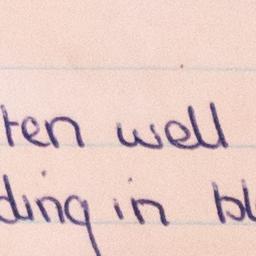 ten well
ding in bl